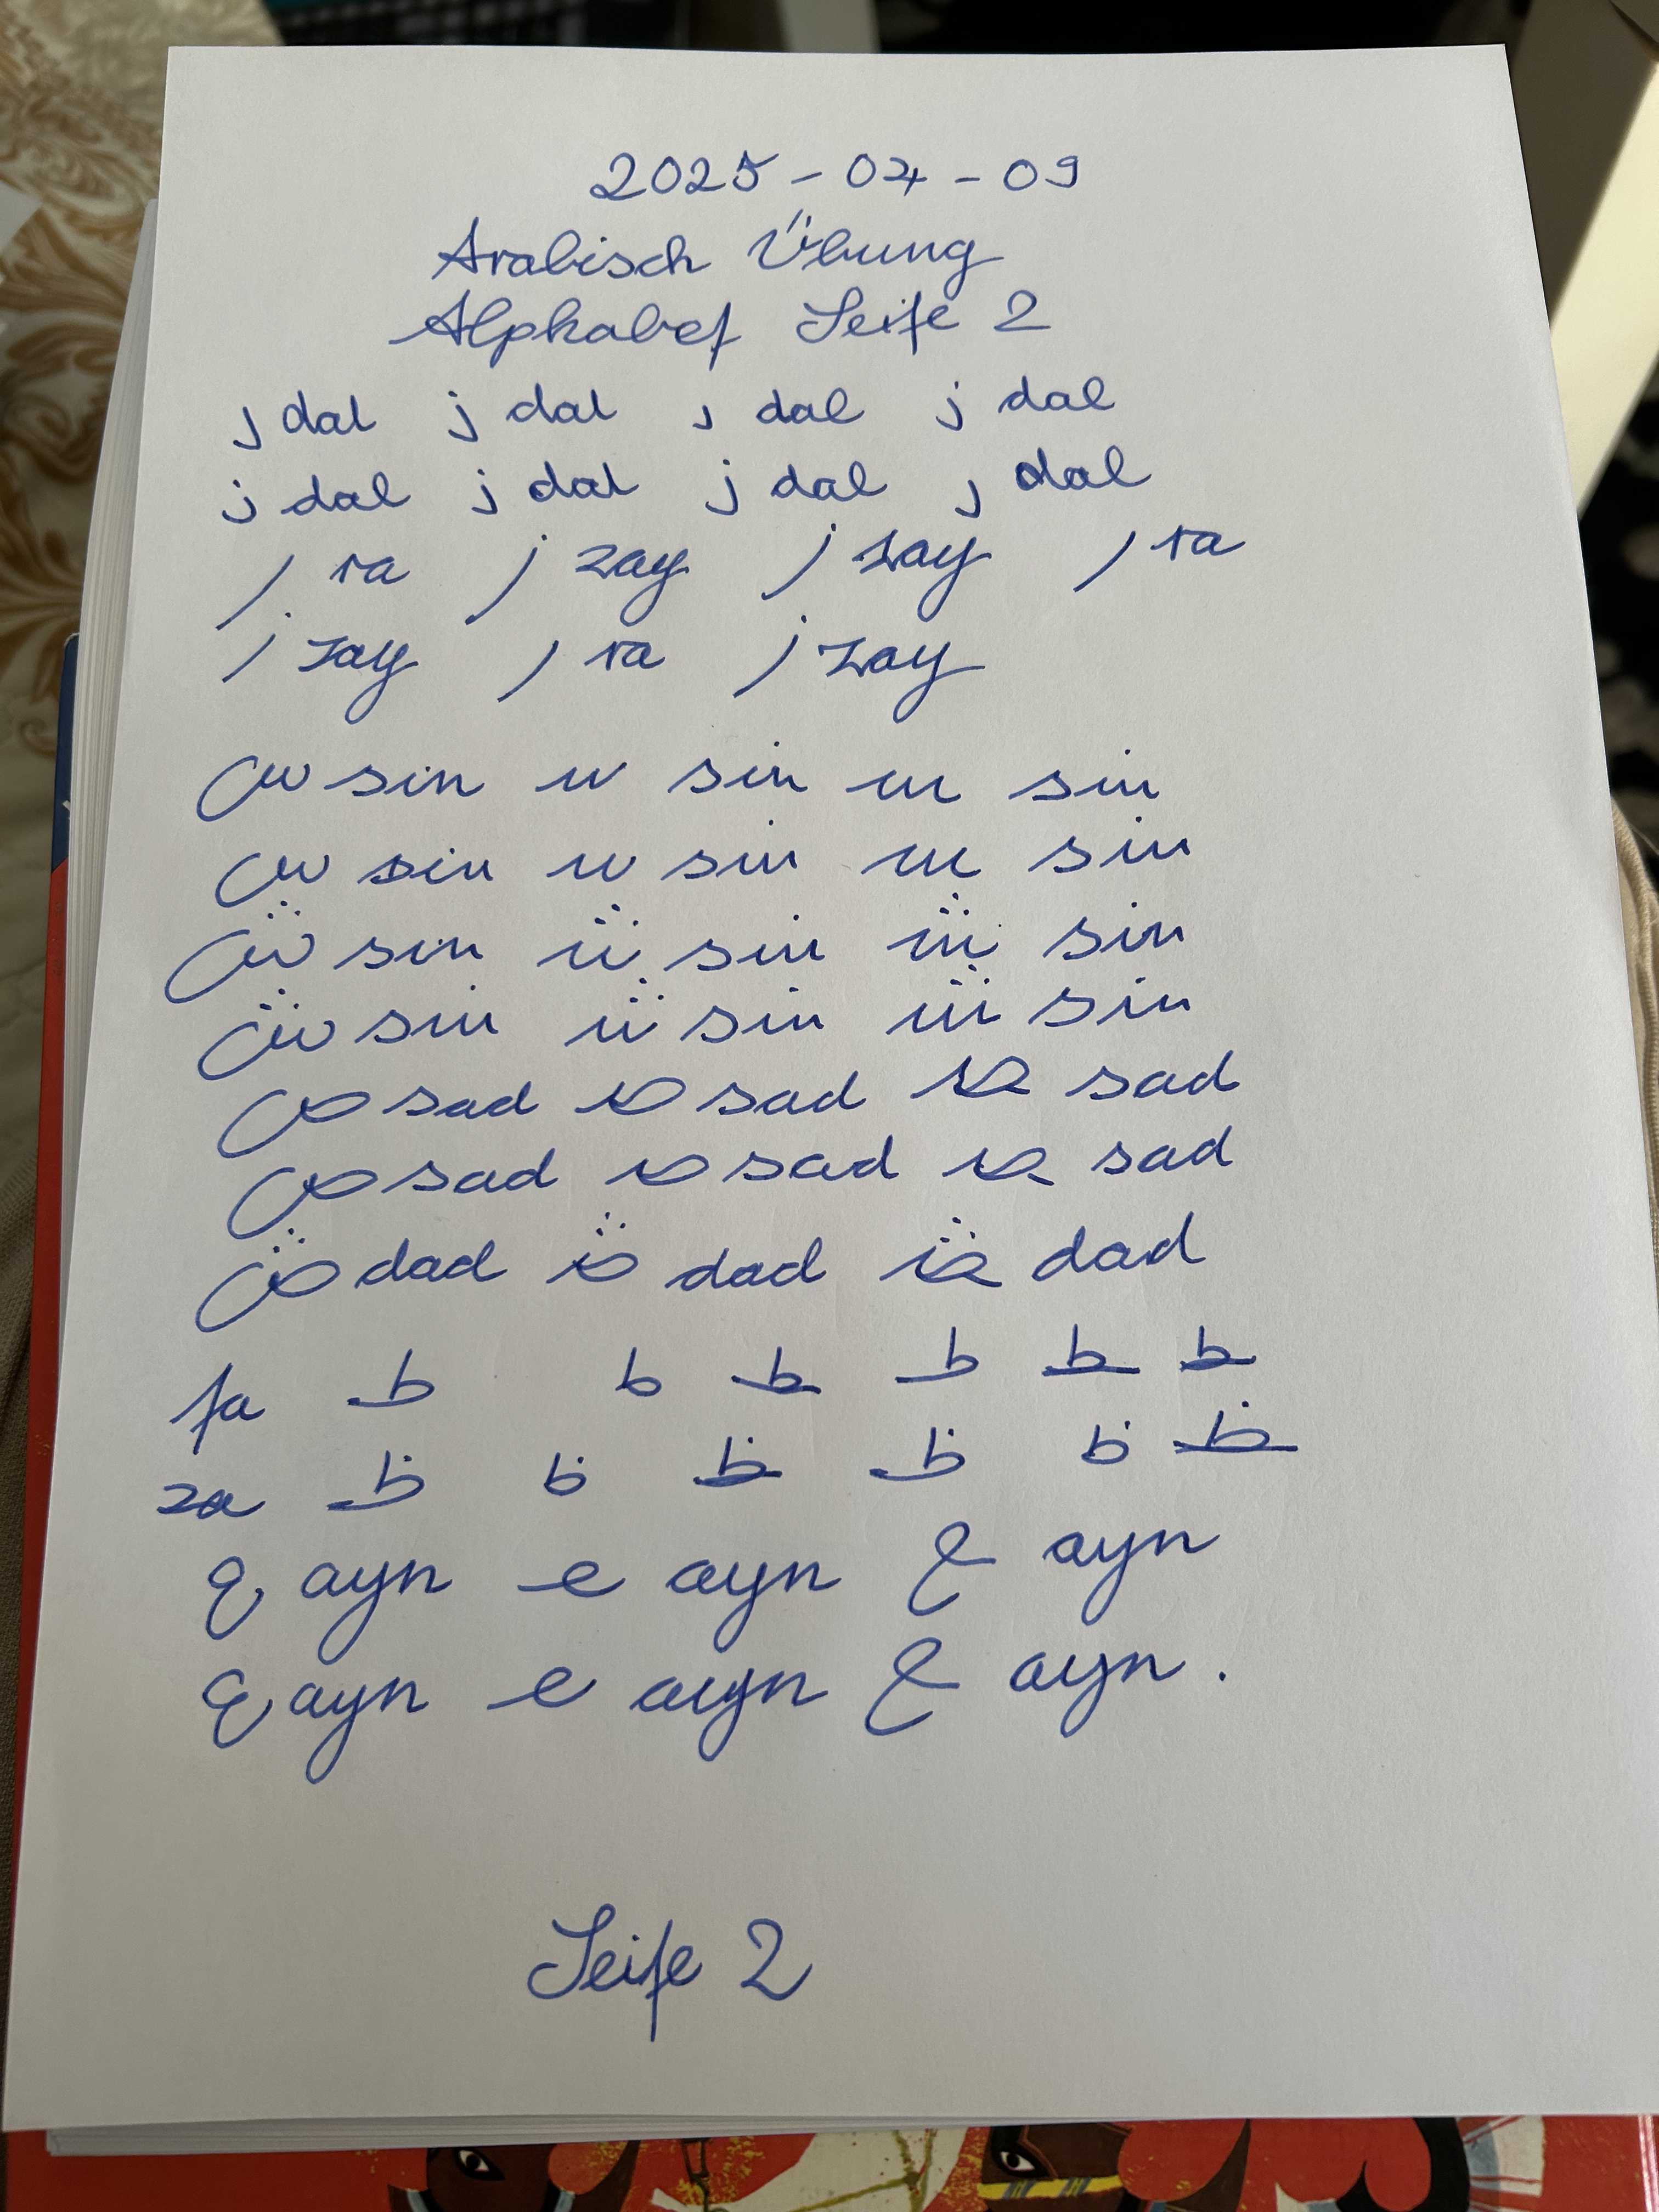 2025-04-09
Arabisch Übung
Alphabet Seite 2
د dal ذ dal د dal ذ dal
ذ dal ذ dal ذ dal د dal
ر ra ز zay ز zay ر ra
ز zay ر ra ز zay
س sin سـ sin ـسـ sin
س sin سـ sin ـسـ sin
ش sin شـ sin ـشـ sin
ش sin شـ sin ـشـ sin
ص sad صـ sad ـصـ sad
ص sad صـ sad ـصـ sad
dad dad dad
ta ط ط ـطـ ط ـطـ ـطـ
za ظ ظ ـظـ ظ ظ ـظـ
ع ayn عـ ayn ع ayn
ع ayn عـ ayn ع ayn.
Seite 2